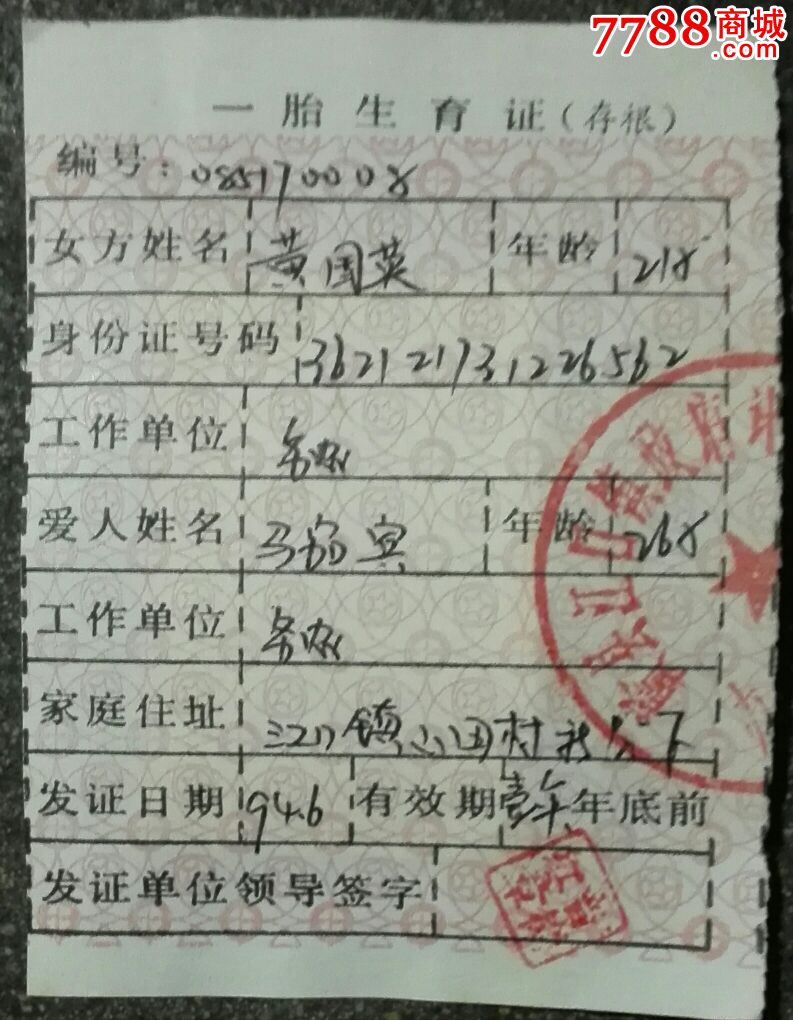 7788商城
.com
一胎生育证(存根)
编号:085170008
女方姓名 黄国英 年龄 21岁
身份证号码 362121731226562
工作单位 务农
爱人姓名 马 宾 年龄 26岁
工作单位 务农
家庭住址 江口镇 田村 下
发证日期 94.6 有效期 壹年 年底前
发证单位领导签字
县江口镇政府计